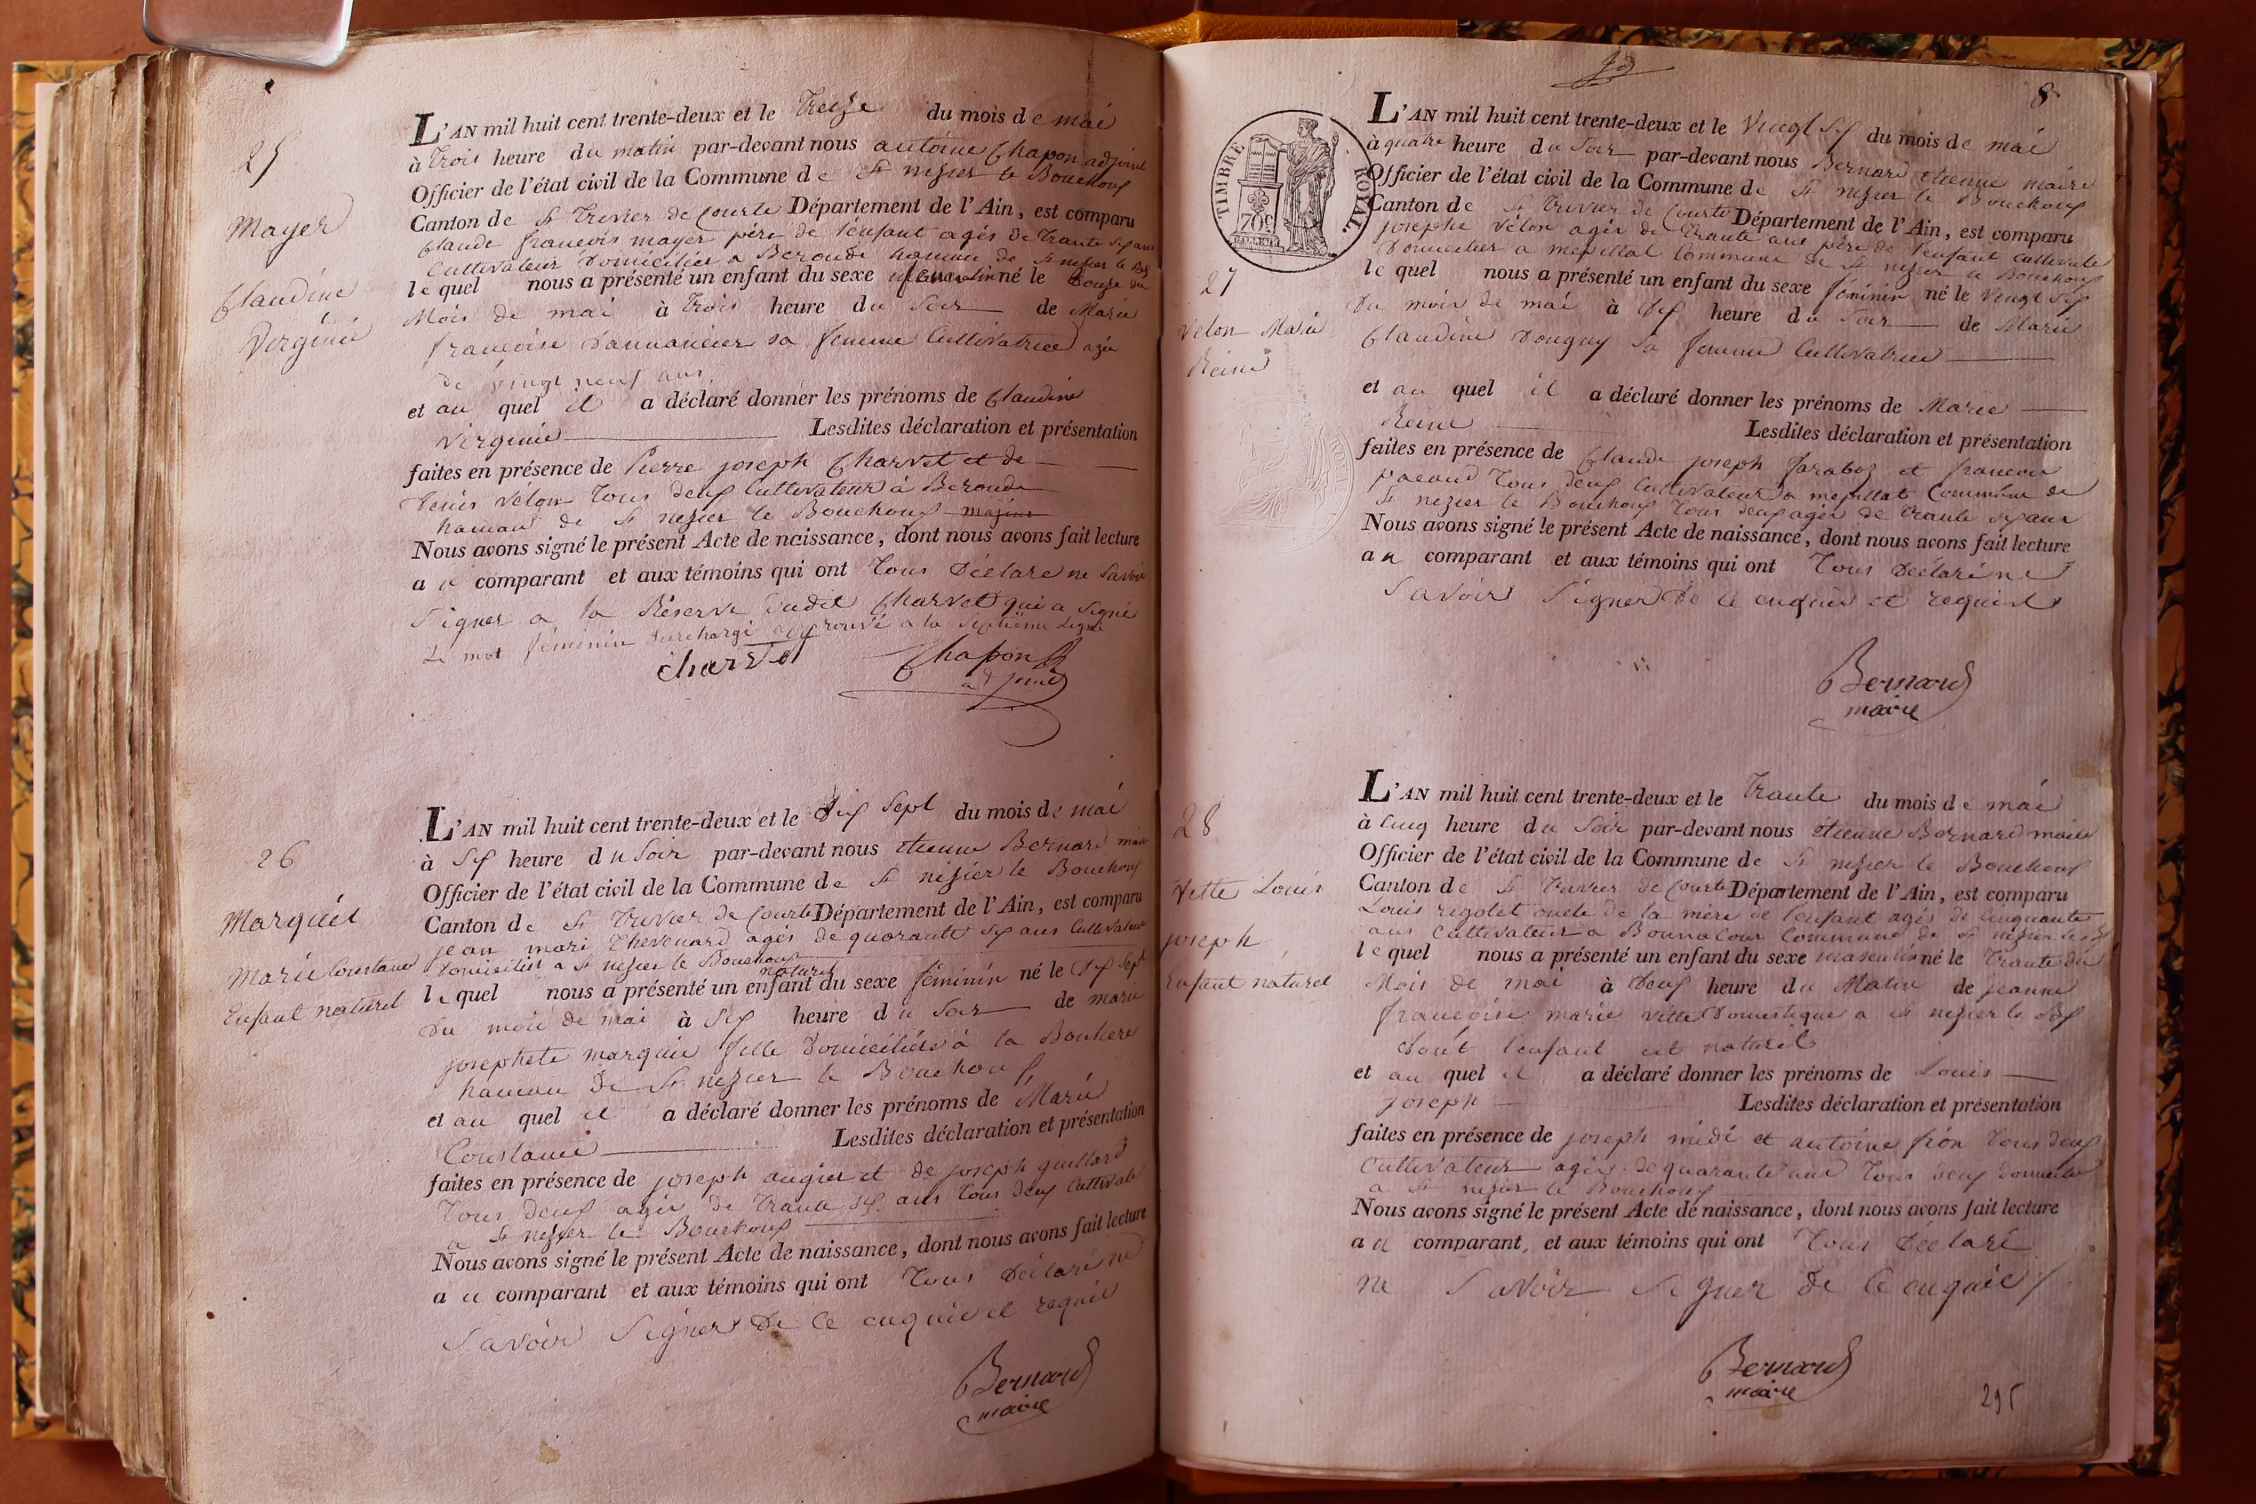 25
Mayer
Claudine
Virginie
L'AN mil huit cent trente-deux et le Treize du mois de mai
à Trois heure du matin par-devant nous antoine Chapon adjoint
Officier de l'état civil de la Commune de St nizier le Bouchoux
Canton de St Trivier de Courte Département de l'Ain, est comparu
Claude françois mayer père de l'enfant agés de trante six ans
Cultivateur Domicilier a Beroude hameau de St nizier le Bx
le quel nous a présenté un enfant du sexe féminin né le Douze du
Mois de mai à Trois heure du Soir de Marie
françoise Dannancier sa femme Cultivatrice agée
de vingt neuf ans
et au quel il a déclaré donner les prénoms de Claudine
Virginie Lesdites déclaration et présentation
faites en présence de Pierre joseph Charvet et de
Denis Vélon Tous deux Cultivateur à Beroude
hameau de St nizier le Bouchoux
Nous avons signé le présent Acte de naissance, dont nous avons fait lecture
au comparant et aux témoins qui ont Tous Déclare ne Savoir
Signer a la Réserve dudit Charvet qui a Signé
Le mot féminin surchargé approuvé a la septième Ligne
Charvet Chapon
adjoint
26
Marquis
Marie Constance
Enfant naturel
L'AN mil huit cent trente-deux et le dix Sept du mois de mai
à Six heure du Soir par-devant nous étienne Bernard maire
Officier de l'état civil de la Commune de St nizier le Bouchoux
Canton de St Trivier de Courte Département de l'Ain, est comparu
jean mari Thevenard agés de quarante six ans Cultivateur
Domicilier a St nizier le Bouchoux
naturel
le quel nous a présenté un enfant du sexe féminin né le dix Sept
Du mois de mai à Six heure du Soir de marie
josephete marquis fille Domiciliée à la Bouchere
hameau de St nizier le Bouchoux
et au quel il a déclaré donner les prénoms de Marie
Constance Lesdites déclaration et présentation
faites en présence de joseph augier et de joseph guillard
Tous deux agés de trante six ans tous deux Cultivateur
a St nizier le Bouchoux
Nous avons signé le présent Acte de naissance, dont nous avons fait lecture
au comparant et aux témoins qui ont Tous Déclaré ne
Savoir Signer De ce enquis et requis
Bernard
maire
8
TIMBRE ROYAL
70c
27
Vélon Marie
Reine
L'AN mil huit cent trente-deux et le Vingt Six du mois de mai
à quatre heure du Soir par-devant nous Bernard étienne maire
Officier de l'état civil de la Commune de St nizier le Bouchoux
Canton de St Trivier de Courte Département de l'Ain, est comparu
josephe Vélon agés de trante ans père de l'enfant Cultivateur
Domicilier a mepillat Commune de St nizier le Bouchoux
le quel nous a présenté un enfant du sexe féminin né le Vingt Six
Du mois de mai à Dix heure du Soir de Marie
Claudine Donguy Sa femme Cultivatrice
et au quel il a déclaré donner les prénoms de Marie
Reine Lesdites déclaration et présentation
faites en présence de Claude joseph faraboz et françois
pacaud Tous deux Cultivateur a mepillat Commune de
St nizier le Bouchoux Tous deux agés de trante six ans
Nous avons signé le présent Acte de naissance, dont nous avons fait lecture
au comparant et aux témoins qui ont Tous Déclaré ne
Savoir Signer De ce enquis et requis
Bernard
maire
28
Vette Louis
joseph
Enfant naturel
L'AN mil huit cent trente-deux et le trante du mois de mai
à cinq heure du Soir par-devant nous étienne Bernard maire
Officier de l'état civil de la Commune de St nizier le Bouchoux
Canton de St Trivier de Courte Département de l'Ain, est comparu
Louis rigolet oncle de la mère de l'enfant agés de cinquante
ans Cultivateur a Bonnacour Commune de St nizier le Bx
le quel nous a présenté un enfant du sexe masculin né le trante du
Mois de mai à Deux heure du Matin de jeanne
françoise marie Vette Domestique a St nizier le Bx
dont l'enfant est naturel
et au quel il a déclaré donner les prénoms de Louis
joseph Lesdites déclaration et présentation
faites en présence de joseph midi et antoine fion tous deux
Cultivateur agés de quarante ans Tous deux Domicilier
a St nizier le Bouchoux
Nous avons signé le présent Acte de naissance, dont nous avons fait lecture
au comparant, et aux témoins qui ont Tous Déclaré
ne Savoir Signer De ce enquis
Bernard
maire
295